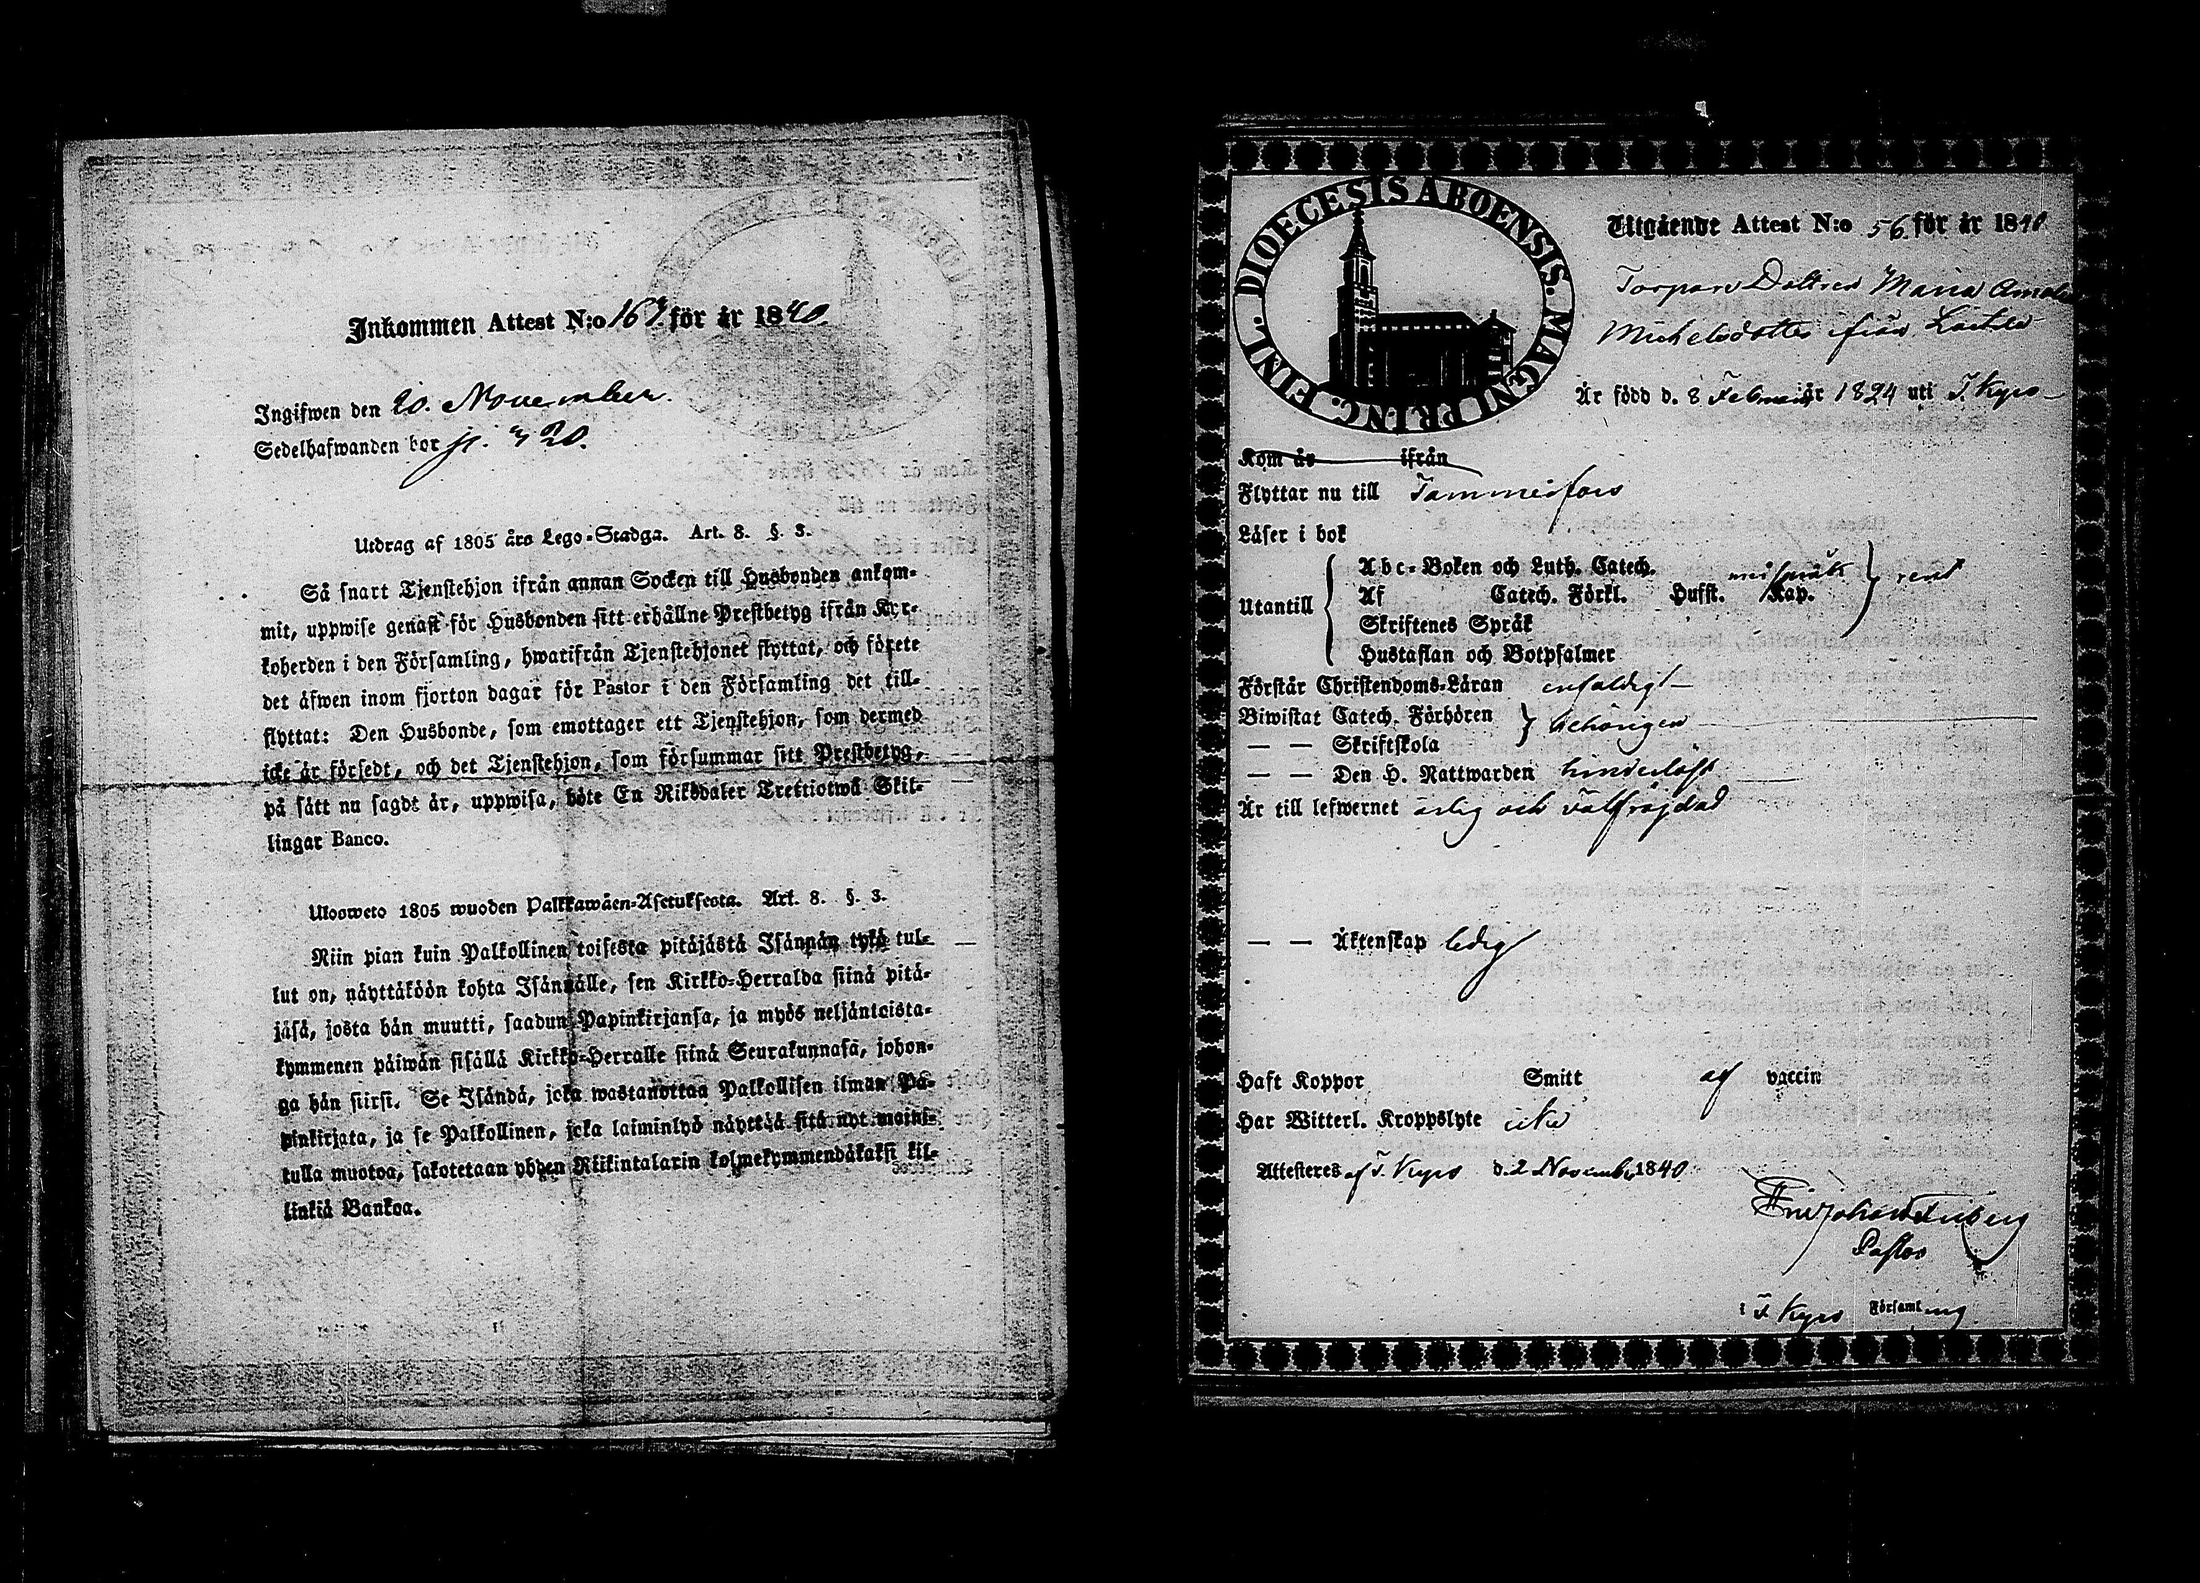 Inkommen Attest N:o 167. för år 1840.
Ingifwen den 20. November.
Sedelhafwanden bor
Utdrag af 1805 års Lego-Stadga. Art. 8. §. 3.
Så snart Tjenstehjon ifrån annan Socken till Husbonden ankom-
mit, uppwise genast för Husbonden sitt erhållne Prestbetyg ifrån Kyr-
koherden i den Församling, hwarifrån Tjenstehjonet flyttat, och förete
det äfwen inom fjorton dagar för Pastor i den Församling det till-
flyttat: Den Husbonde, som emottager ett Tjenstehjon, som dermed
icke är försedt, och det Tjenstehjon, som försummar sitt Prestbetyg,
på sätt nu sagdt är, uppwisa, böte En Riksdaler Trettiotwå Skil-
lingar Banco.
Ulosweto 1805 wuoden Palkkawäen-Asetuksesta. Art. 8. §. 3.
Niin pian kuin Palkollinen toisesta pitäjästä Isännän tykö tul-
lut on, näyttäköön kohta Isännälle, sen Kirkko-Herralda siinä pitä-
jäsä, josta hän muutti, saadun Papinkirjansa, ja myös neljäntoista-
kymmenen päiwän sisällä Kirkko-Herralle siinä Seurakunnasa, johon-
ga hän siirsi. Se Isändä, joka wastanottaa Palkollisen ilman Pa-
pinkirjata, ja se Palkollinen, joka laiminlyö näyttää sitä nyt maini-
tulla muotoa, sakotetaan yhden Riikintalarin kolmekymmendäkaksi kil-
linkiä Bankoa.
DIOECESIS ABOENSIS. MAGNI PRINC. FINL.
Utgående Attest N:o 56. för år 1840
Torpare Dottren Maria Amalia
Michelsdotter från
Är född d. 8 Februarii år 1824 uti T. Kyro
Kom år ifrån
Flyttar nu till Tammerfors
Läser i bok
Utantill
Abc-Boken och Luth. Catech.
Af Catech. Förkl. Husst. Kap. rent
Skriftenes Språk
Hustaflan och Botpsalmer
Förstår Christendoms-Läran enfaldigt
Biwistat Catech. Förhören behörigen
— — Skriftskola
— — Den H. Nattwarden hinderlöst
Är till lefwernet ärlig och välfräjdad
— — Äktenskap ledig
Haft Koppor Smitt af vaccin
Har Witterl. Kroppslyte icke
Attesteres af T. Kyro d. 2 November 1840
Pastor
i T. Kyro Församling